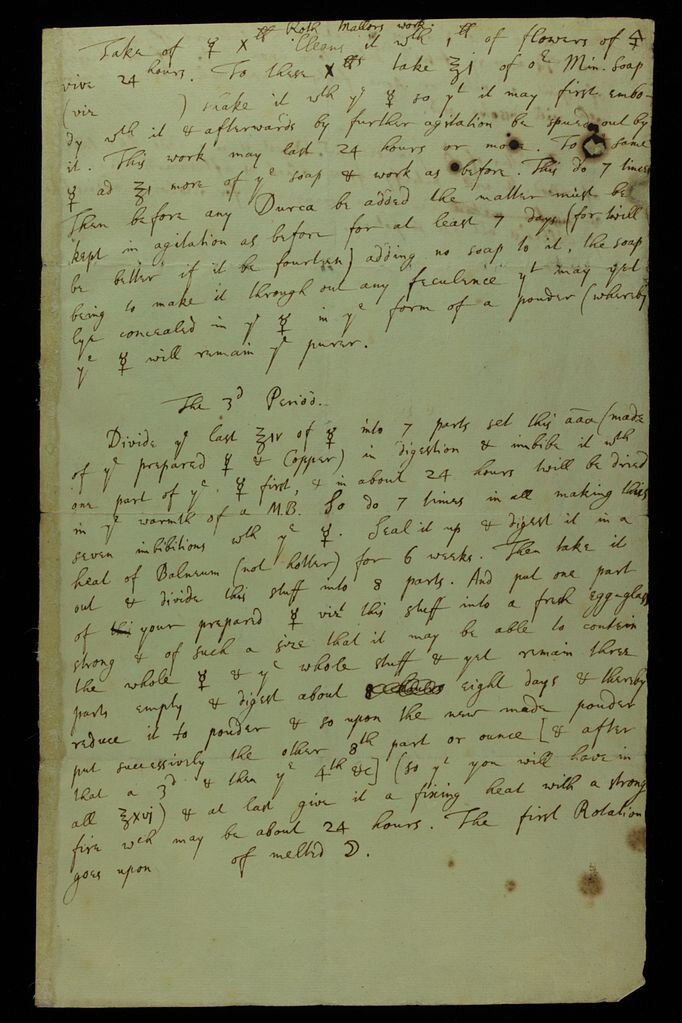 Roth Mallors work.
Take of ☿ x ℔ Cleans it wth 1 ℔ of flowers of 🜍
vive 24 hours. To these x ℔s take ℥1 of oe Min. Soap
(viz ) shake it wth ye ☿ so yt it may first embo-
dy wth it & afterwards by further agitation be spued out by
it. This work may last 24 hours or more. To same
☿ ad ℥1 more of ye soap & work as before. This do 7 times
Then before any Durca be added the matter must be
kept in agitation as before for at least 7 days (for twill
be better if it be fourteen) adding no soap to it, the soap
being to make it through out any feculence yt may yet
lye concealed in ye ☿ in ye form of a pouder (whereby
ye ☿ will remain ye purer.
The 3d Period.
Divide ye last ℥iv of ☿ into 7 parts set this āāa (made
of ye prepared ☿ & Copper) in digestion & imbibe it wth
one part of ye ☿ first, & in about 24 hours twill be dried
in ye warmth of a M.B. So do 7 times in all making this
seven imbibitions wth ye ☿. Seal it up & digest it in a
heat of Balneum (not hotter) for 6 weeks. Then take it
out & divide this stuff into 8 parts. And put one part
of your prepared ☿ viz this stuff into a fresh egg-glass
strong & of such a size that it may be able to contein
the whole ☿ & ye whole stuff & yet remain three
parts empty & digest about eight days & thereby
reduce it to pouder & so upon the new made pouder
put successively the other 8th part or ounce [& after
that a 3d & then ye 4th &c] (so yt you will have in
all ℥xvj) & at last give it a fixing heat with a strong
fire wch may be about 24 hours. The first Rotation
goes upon of melted ☽.